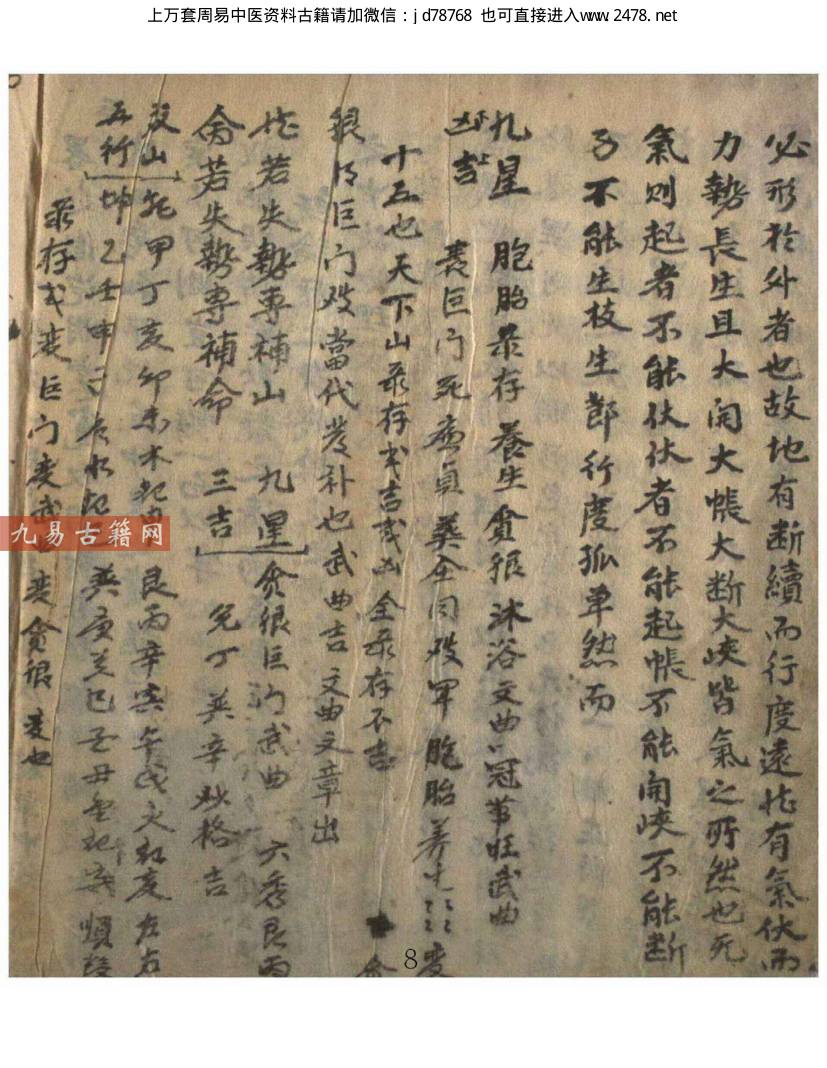 上万套周易中医资料古籍请加微信：jd78768 也可直接进入www.2478.net
必形於外者也故地有断續而行度遠性有氣伏而
力勢長生且大開大帳大断大峽皆氣之所然也死
氣则起者不能伏伏者不能起帳不能開峽不能断
了不能生枝生節行度孤单然而
九星 胞胎录存 養生貪狼 沐浴文曲 冠带旺武曲
凶吉 衰巨门死廉貞 葬全同破軍 胞胎养生 变
十五也天下山录存或吉或凶全录存不吉
狼得巨门及當代发补也武曲吉 文曲文章出
性若失勢專補山 九星 貪狼巨门武曲 六秀艮丙
龠若失勢專補命 三吉 兌丁 巽辛 格吉
双山 乾甲丁亥卯未木起 艮丙辛寅午戌火起度左右
五行 坤乙壬申子辰水起 巽庚 巳丑 順
录存或变巨门变武曲变貪狼变也
九易古籍网
8